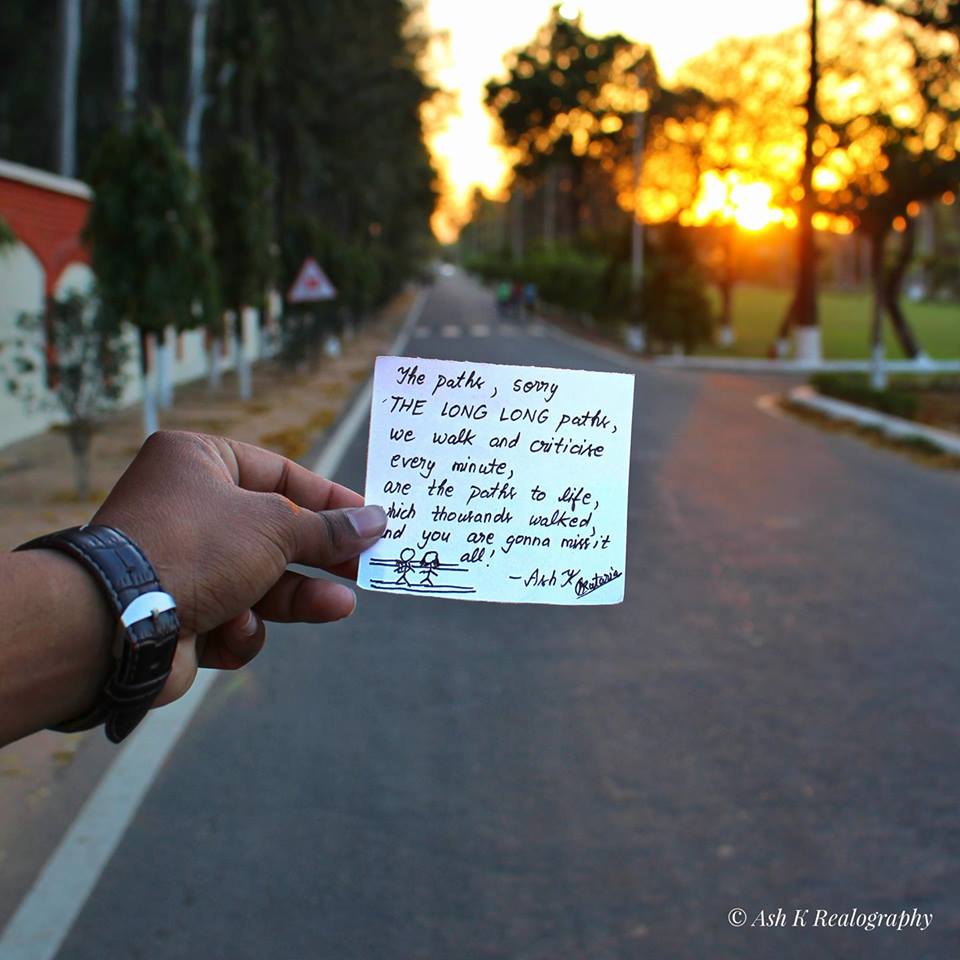 The paths, sorry
THE LONG LONG paths,
we walk and criticise
every minute,
are the paths to life,
which thousands walked,
and you are gonna miss it
all!
- Ash K Kataria
© Ash K Realography